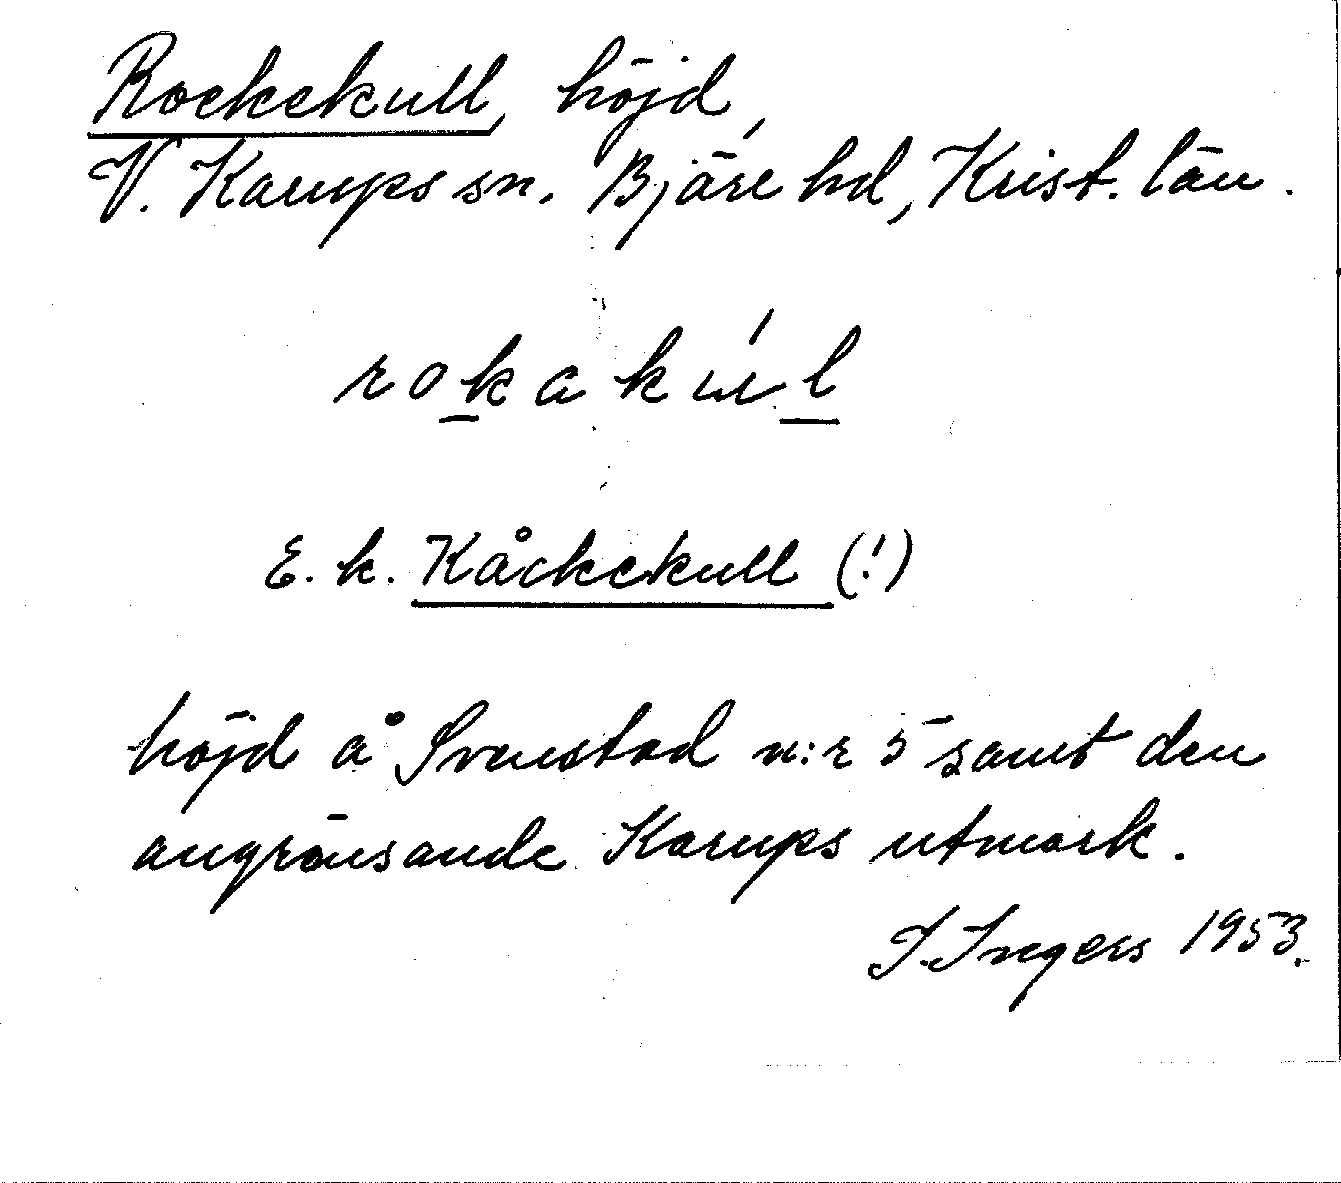 Rockekull, höjd,
V. Karups sn. Bjäre hd, Krist. län.
rokakúl
E. k. Kåckekull (!)
höjd å Svenstad n:r 5 samt den
angränsande Karups utmark.
I. Ingers 1953.